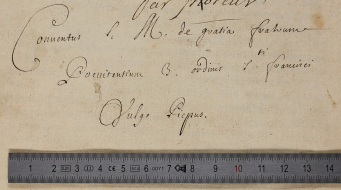 Conventus S. M. de gratia fratrum
Poenitentium 3. ordinis S.ti francisci
Vulgo Picpus.
1 2 3 4 5 6 7 8 9 10 11 12 13 14